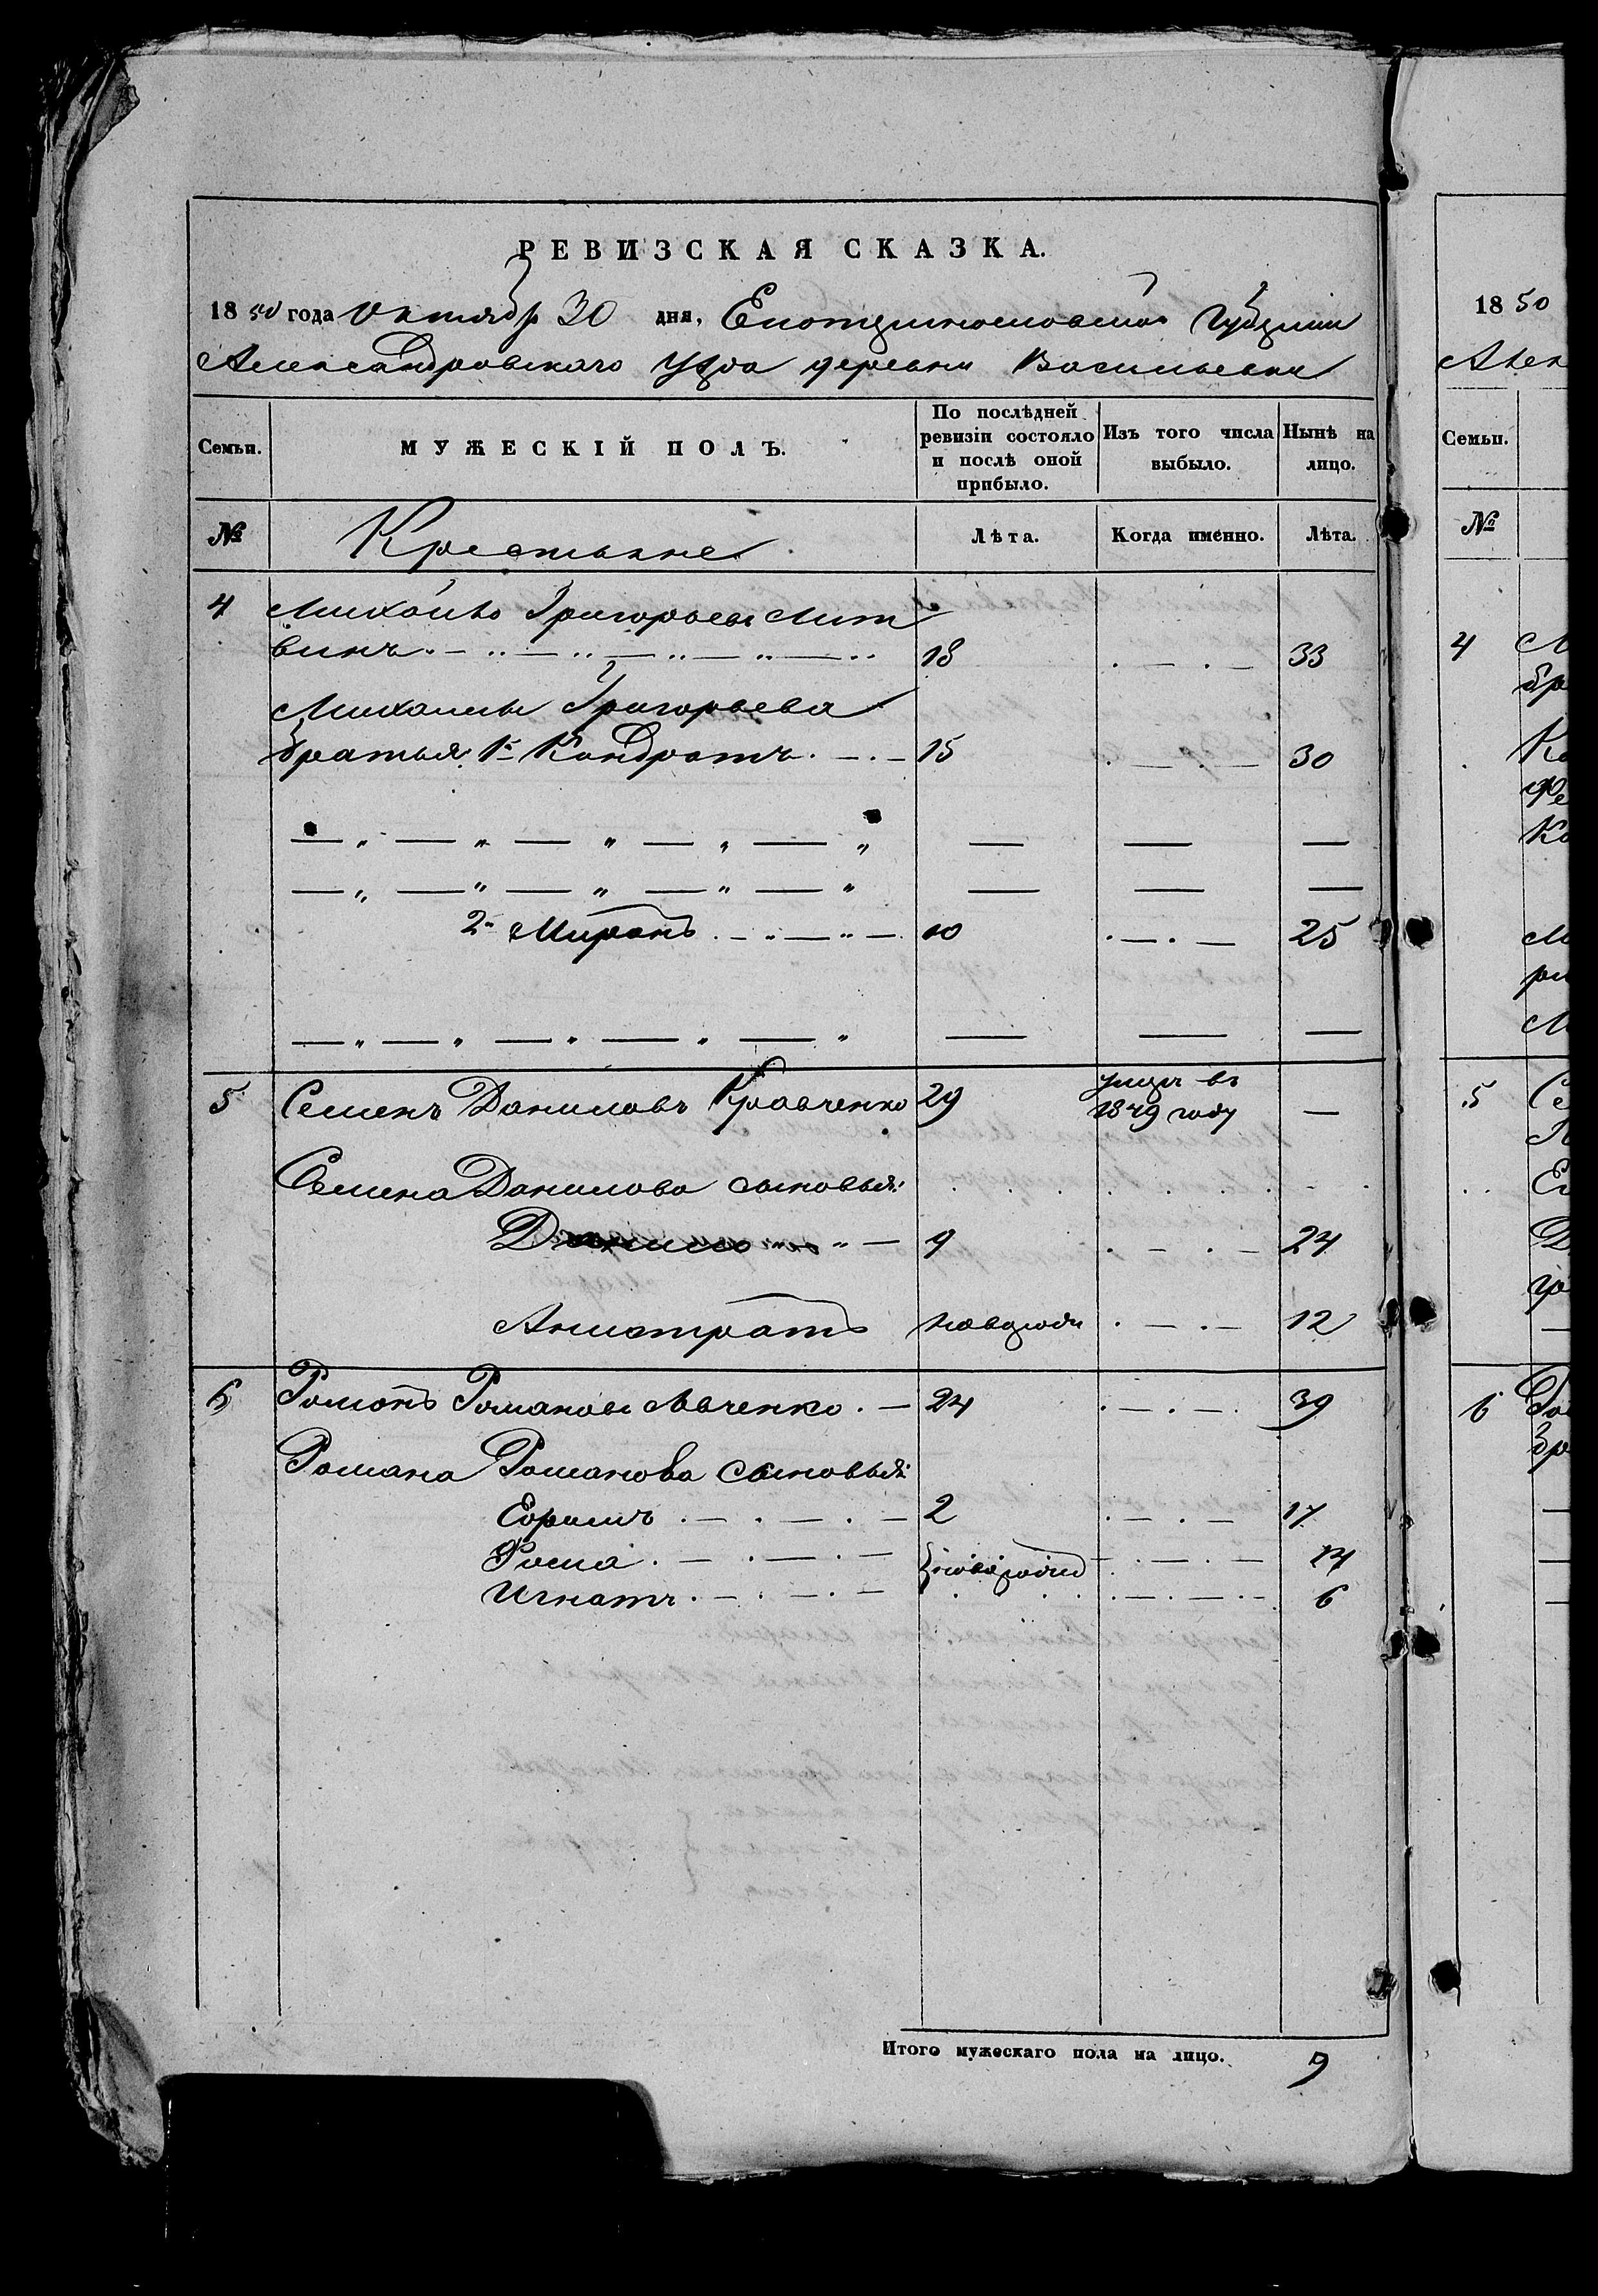 РЕВИЗСКАЯ СКАЗКА.
1850 года Октября 30 дня, Екатеринославской Губернии
Александровскаго Уѣзда деревни Васильевки
Семьи.
МУЖЕСКІЙ ПОЛЪ.
По послѣдней ревизіи состояло и послѣ оной прибыло.
Изъ того числа выбыло.
Нынѣ на лицо.
№
Крестьяне
Лѣта.
Когда именно.
Лѣта.
4 Михайло Григорьевъ Лит
винъ 18 33
Михайлы Григорьева
братья: 1й Кондратъ 15 30
2й Миронъ 10 25
5 Семенъ Даниловъ Кравченко 29 умеръ въ 1849 году —
Семена Данилова сыновья:
Данило 9 24
Анистратъ новорожд 12
6 Романъ Романовъ Явченко 24 39
Романа Романова сыновья:
Ефимъ 2 17
Фома 14
новорожд
Игнатъ 6
Итого мужескаго пола на лицо. 9
1850
Алек
Семьи.
№
4
бр
Ко
Фе
Ко
5
Се
6